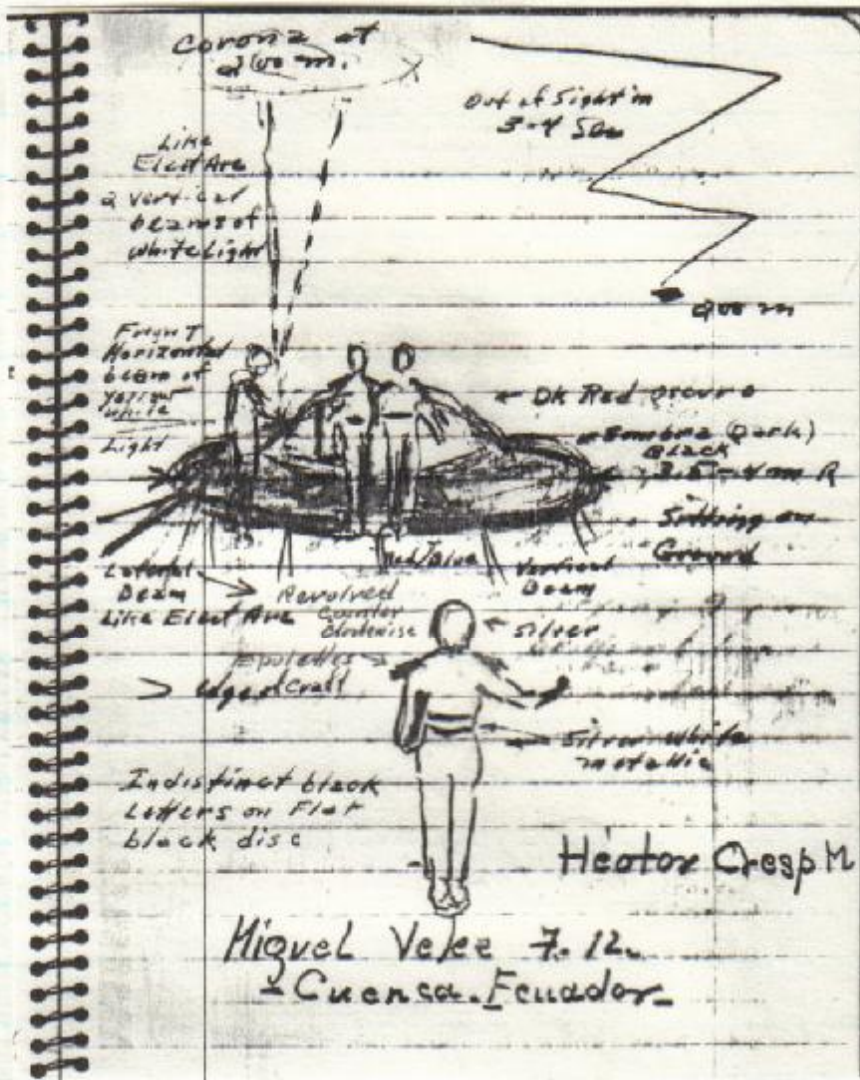 Corona at
200 m.
Out of Sight in
3-4 Sec
Like
Elect Arc
2 vertical
beams of
White Light
200 m
Front
Horizontal
beam of
Yellow
White
Light
Dk Red oscuro
Sombra (Dark)
Black
3.5-4 m R
Sitting on
Ground
Red/Blue
Lateral
Beam
Like Elect Arc
Vertical
Beam
Revolved
Counter
Clockwise
Silver
Epolettes
Edge of Craft
Silver White
metallic
Indistinct black
Letters on Flat
black disc
Hector Crespo M
Miguel Velez 7.12.
- Cuenca. Ecuador -